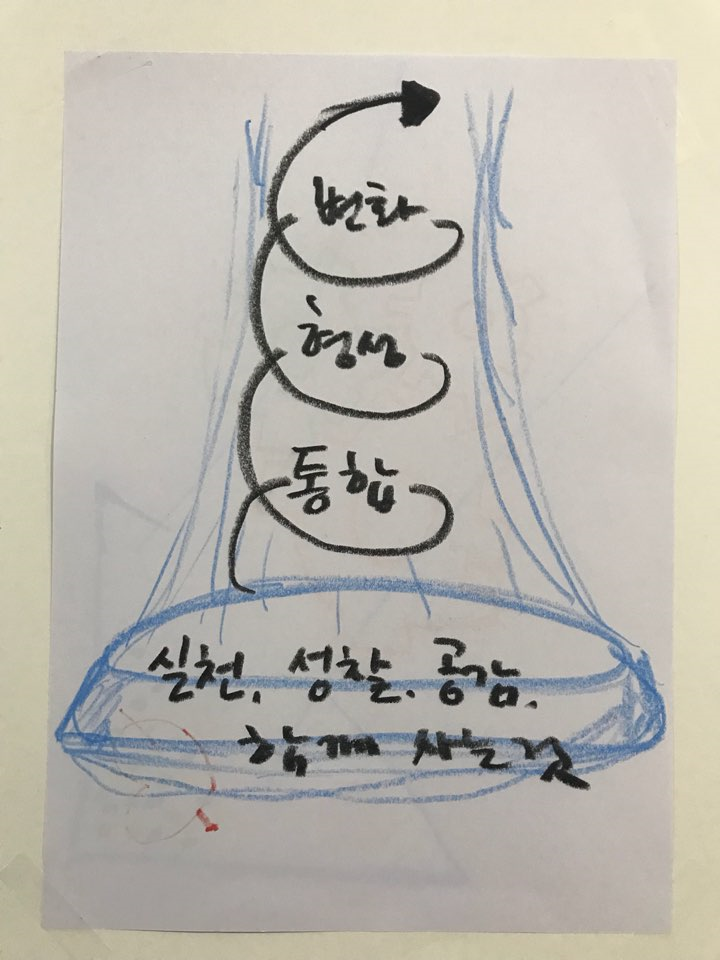 변화
형성
통합
실천, 성찰, 공감,
함께 사는 것